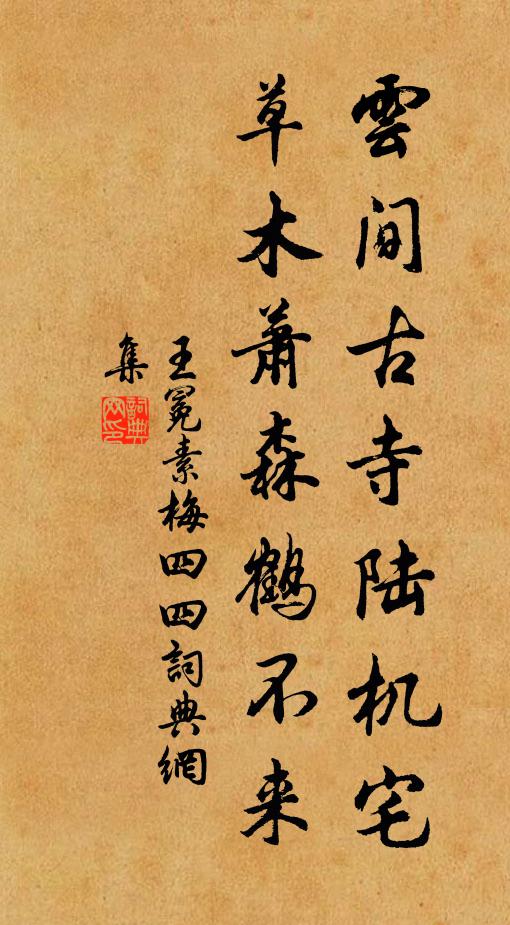 雲间古寺陆机宅
草木蕭森鶴不来
王冕素梅四四詞典網
集
詞典
网印